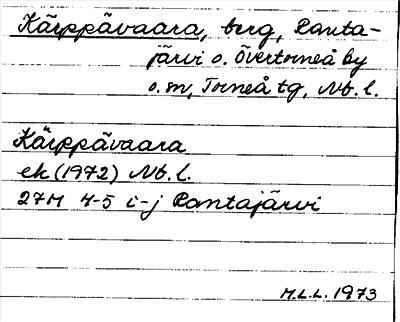 Kärppävaara, berg, Ranta-
järvi o. Övertorneå by
o. sn, Torneå tg, Nb. l.
Kärppävaara
ek (1972) Nb. l.
27M 4-5 i-j Rantajärvi
M.L.L. 1973